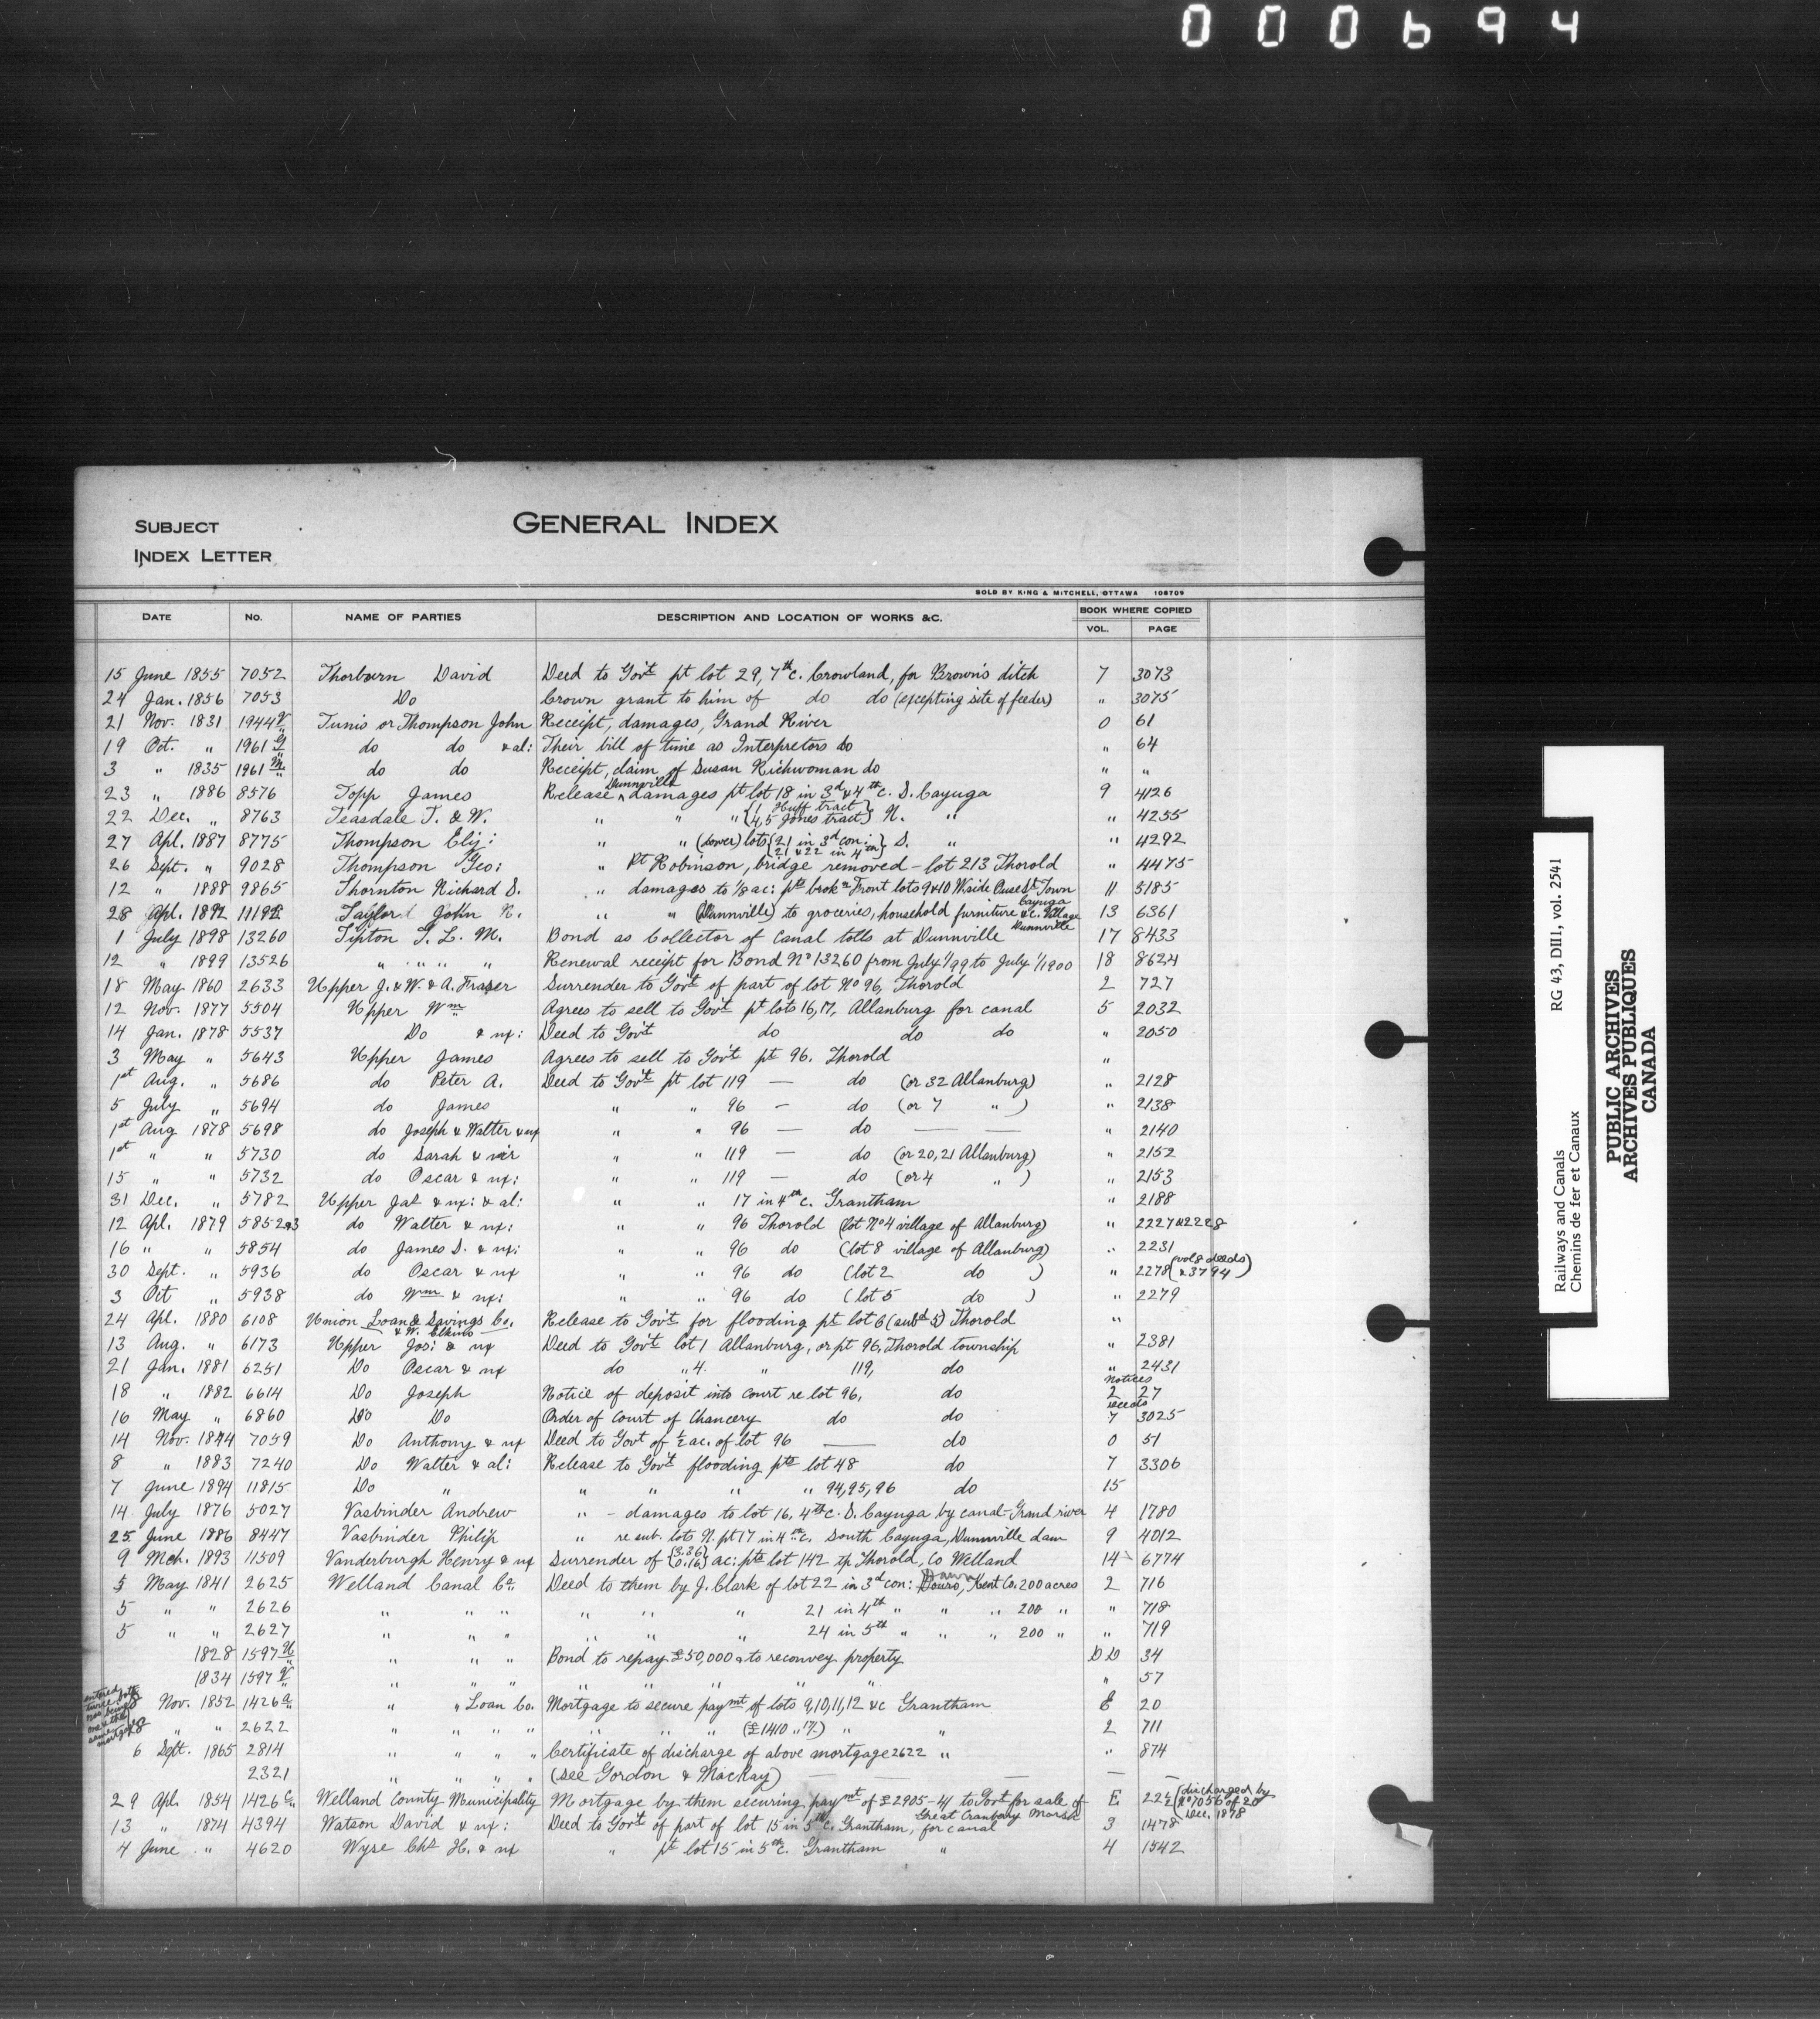 000694
SUBJECT
GENERAL INDEX
INDEX LETTER
SOLD BY KING & MITCHELL, OTTAWA 108709
DATE No. NAME OF PARTIES DESCRIPTION AND LOCATION OF WORKS &C. BOOK WHERE COPIED
VOL. PAGE
15 June 1855 7052 Thorburn David Deed to Gov't pt lot 29, 7th c. Crowland, for Brown's ditch 7 3073
24 Jan. 1856 7053 Do Crown grant to him of do do (excepting site of feeder) " 3075
21 Nov. 1831 1944 V Tunis or Thompson John Receipt, damages, Grand River 0 61
19 Oct. " 1961 do do & al: Their bill of time as Interpretors do " 64
3 " 1835 1961 do do Receipt, claim of Susan Richwoman do " "
23 " 1886 8576 Topp James Release Dunnville damages pt lot 18 in 3d & 4th c. S. Cayuga 9 4126
22 Dec. " 8763 Teasdale T. & W. " " " {1, Huff tract} {4,5 Jones tract} N. " " 4255
27 Apl. 1887 8775 Thompson Eliz: " " (sower) lots {21 in 3d con:} {21 & 22 in 4th} S. " " 4292
26 Sept. " 9028 Thompson Geo: " Pt Robinson, bridge removed - lot 213 Thorold " 4475
12 " 1888 9865 Thornton Richard S. " damages to 1/8 ac: pts brokn Front lots 9 & 10 W side Ouse St Town Cayuga 11 5185
28 Apl. 1892 11192 Taylor John R. " " (Dunnville) to groceries, household furniture &c. Village Dunnville 13 6361
1 July 1898 13260 Tipton T. L. M. Bond as Collector of Canal tolls at Dunnville 17 8433
12 " 1899 13526 " " " " Renewal receipt for Bond No 13260 from July 1/99 to July 1/1900 18 8624
18 May 1860 2633 Upper J. & W. & A. Fraser Surrender to Gov't of part of lot No 96, Thorold 2 727
12 Nov. 1877 5504 Upper Wm Agrees to sell to Gov't pt lots 16, 17, Allanburg for canal 5 2032
14 Jan. 1878 5537 Do & ux: Deed to Gov't do do do " 2050
3 May " 5643 Upper James Agrees to sell to Gov't pt 96. Thorold "
1st Aug. " 5686 do Peter A. Deed to Gov't pt lot 119 — do (or 32 Allanburg) " 2128
5 July " 5694 do James " " 96 — do (or 7 " ) " 2138
1st Aug 1878 5698 do Joseph & Walter & ux " " 96 — do — — " 2140
1st " " 5730 do Sarah & vir " " 119 — do (or 20, 21 Allanburg) " 2152
15 " " 5732 do Oscar & ux: " " 119 — do (or 4 " ) " 2153
31 Dec. " 5782 Upper Jas & ux: & al: " " 17 in 4th c. Grantham " 2188
12 Apl. 1879 5852&3 do Walter & ux: " " 96 Thorold (lot No 4 village of Allanburg) " 2227&2228
16 " " 5854 do James S. & ux: " " 96 do (lot 8 village of Allanburg) " 2231
30 Sept. " 5936 do Oscar & ux " " 96 do (lot 2 do ) " 2278 (vol 8 deeds & 3794)
3 Oct " 5938 do Wm & ux: " " 96 do (lot 5 do ) " 2279
24 Apl. 1880 6108 Union Loan & Savings Co. & W. Elkins Release to Gov't for flooding pt lot 6 (subd 5) Thorold "
13 Aug. " 6173 Upper Jos: & ux Deed to Gov't lot 1 Allanburg, or pt 96, Thorold township " 2381
21 Jan. 1881 6251 Do Oscar & ux do " 4. " 119, do " 2431
18 " 1882 6614 Do Joseph Notice of deposit into court re lot 96, do Notices 2 27
16 May " 6860 Do Do Order of Court of Chancery do do Deeds 7 3025
14 Nov. 1844 7059 Do Anthony & ux Deed to Govt of 1/2 ac. of lot 96 — do 0 51
8 " 1883 7240 Do Walter & al: Release to Gov't flooding pts lot 48 do 7 3306
7 June 1894 11815 Do " " " " " 94, 95, 96 do 15
14 July 1876 5027 Vasbinder Andrew " - damages to lot 16, 4th c. S. Cayuga by canal - Grand river 4 1780
25 June 1886 8447 Vasbinder Philip " re sub. lots N. pt 17 in 4th c. South Cayuga, Dunnville dam 9 4012
9 Mch. 1893 11509 Vanderburgh Henry & ux Surrender of {3.36} {0.16} ac: pts lot 142 tp Thorold, Co Welland 14 6774
5 May 1841 2625 Welland Canal Co. Deed to them by J. Clark of lot 22 in 3d con: Douro, Dawn Kent Co. 200 acres 2 716
5 " " 2626 " " " " " " 21 in 4th " " " 200 " " 718
5 " " 2627 " " " " " " 24 in 5th " " " 200 " " 719
1828 1597 U " " " Bond to repay £50,000 & to reconvey property DD 34
1834 1597 V " " " " " " " " 57
entered twice both nos being one & the same mortgage
8 Nov. 1852 1426 a " " Loan Co. Mortgage to secure paymt of lots 9, 10, 11, 12 &c Grantham E 20
18 " " 2622 " " " " " " " (£1410 " 17/) " " 2 711
6 Sept. 1865 2814 " " " " Certificate of discharge of above mortgage 2622 " " 874
2321 " " " " (see Gordon & Mackay) — — — — —
29 Apl. 1854 1426 c Welland County Municipality Mortgage by them securing paymt of £2905-4/ to Govt for sale of Great Cranberry Marsh E 224 (discharged by No 7056 of 20 Dec. 1878
13 " 1874 4394 Watson David & ux: Deed to Gov't of part of lot 15 in 5th c. Grantham, for canal 3 1478
4 June " 4620 Wyse Chs H. & ux " pt lot 15 in 5th c. Grantham " 4 1542
Railways and Canals RG 43, DII1, vol. 2541
Chemins de fer et Canaux
PUBLIC ARCHIVES
ARCHIVES PUBLIQUES
CANADA